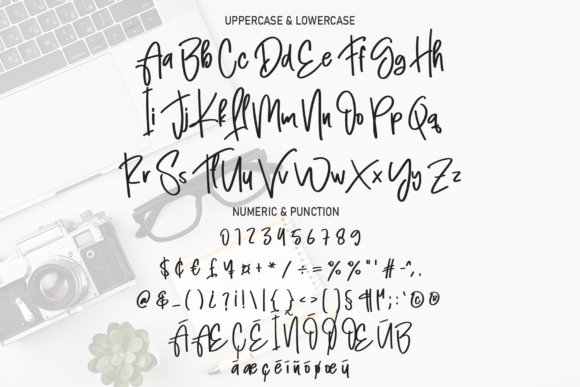 UPPERCASE & LOWERCASE
Aa Bb Cc Dd Ee Ff Gg Hh
Ii Jj Kk Ll Mm Nn Oo Pp Qq
Rr Ss Tt Uu Vv Ww Xx Yy Zz
NUMERIC & PUNCTION
0 1 2 3 4 5 6 7 8 9
$ ¢ € £ ¥ ¤ + * / ÷ = % % " ' # -^, .
@ & _ ( ) ¿ ? ¡ ! \ | { } < > [ ] § ¶ ; : ' © ®
Á Æ Ç É Í Ñ Ó Ø Œ Ú ß
á æ ç é í ñ ó ø œ ú